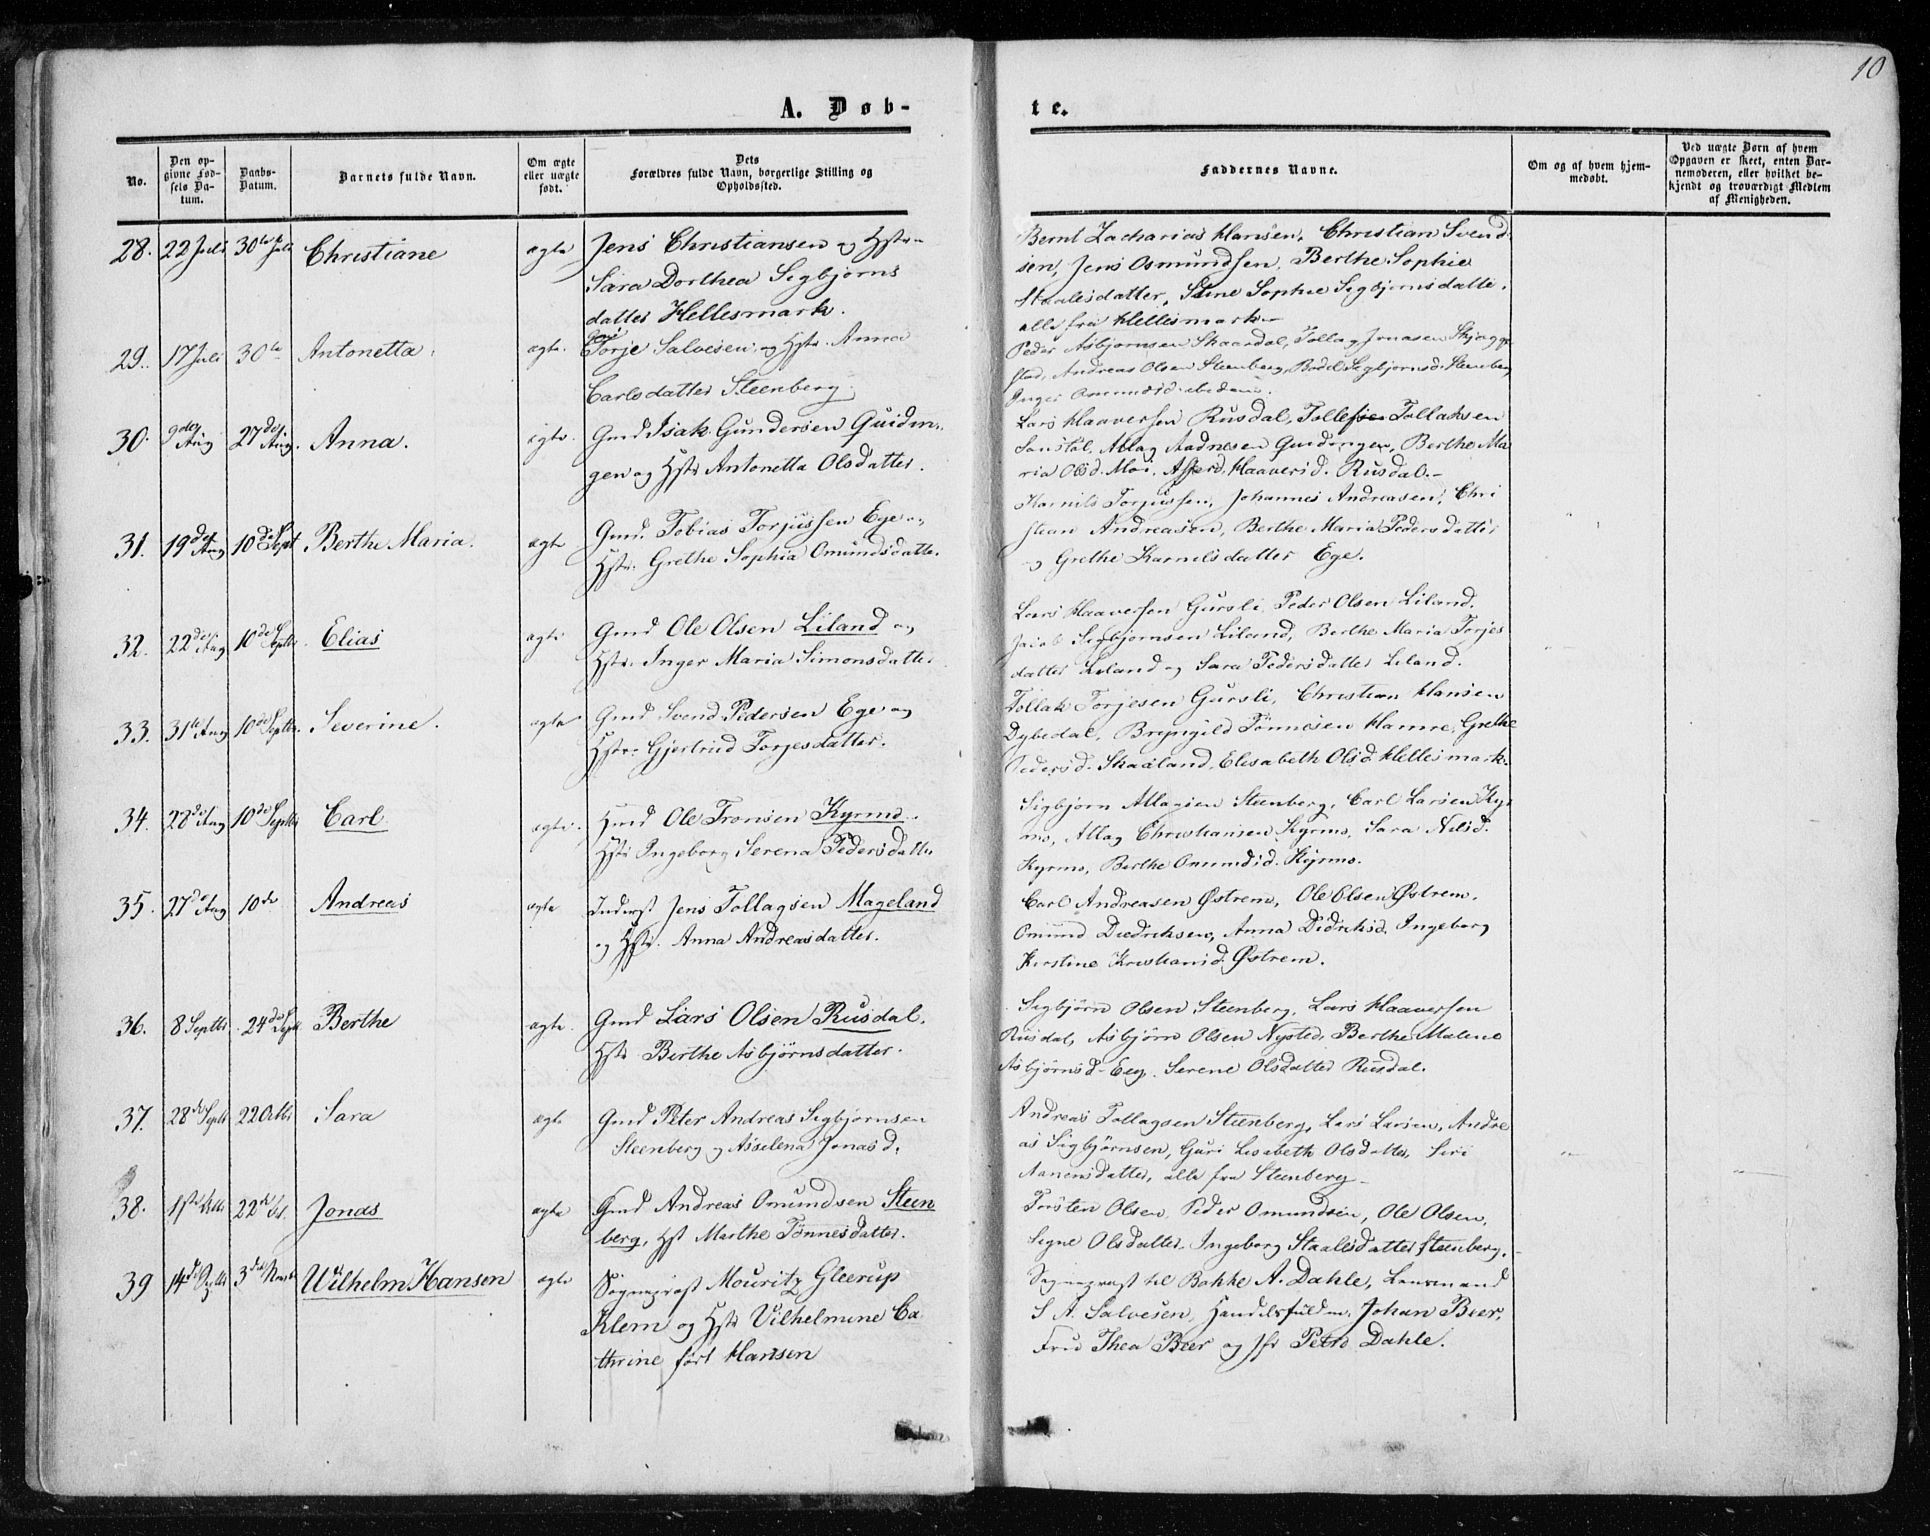 10
A. Døb-
te.
No.
Den op-
givne Fød-
sels Da-
tum.
Daabs-
Datum.
Barnets fulde Navn.
Om ægte
eller uægte
født.
Dets
Forældres fulde Navn, borgerlige Stilling og
Opholdssted.
Faddernes Navne.
Om og af hvem hjem-
medøbt.
Ved uægte Børn af hvem
Opgaven er skeet, enten Bar-
nemoderen, eller hvilket be-
kjendt og troværdigt Medlem
af Menigheden.
28. 22 Juli 30te Juli Christiane ægte Jens Christiansen og Hstr.
Sara Dorthea Sigbjørns
datter Hellesmark.
Bernt Zacharias Hansen, Christian Svend-
sen, Jens Osmundsen, Berthe Sophie
Staalesdatter, Stine Sophie Sigbjørnsdatte.
alle fra Hellesmark
29. 17 Juli 30te Antonetta ægte. Torje Salvesen og Hstr. Anna
Carlsdatter Steenberg
Peder Asbjørnsen Skaardal, Tollag Jonasen Skjægge
stad, Andreas Olsen Steenberg, Bodel Sigbjørnsd. Steenberg
Inger Omundsd. ibidem.
30. 9de Aug 27de Aug. Anna. ægte. Gmd Isak Gundersen Guidin-
gen og Hstr Antonetta Olsdatter.
Lars Haaversen Rusdal, Tollef Tollaksen
Sanstøl, Atlag Aadnesen Guidingen, Berthe Ma
ria Olsd. Moi, Haaversd. Rusdal.
31. 19de Aug 10de Sept Berthe Maria. ægte Gmd. Tobias Torjussen Ege og
Hstr. Grethe Sophia Omundsdatte.
Karnils Torjussen, Johannes Andreasen, Chri
stian Andreasen, Berthe Maria Pedersdatter
og Grethe Karnelsdatter Ege.
32. 22de Aug 10de Septbr. Elias ægte Gmd Ole Olsen Liland og
Hstr. Inger Maria Simonsdatter
Lars Haaversen Gursli, Peder Olsen Liland.
Jacob Sigbjørnsen Liland, Berthe Maria Torjes
datter Liland og Sara Pedersdatter Liland.
33. 31te Aug 10de Septbr. Severine. ægte Gmd Svend Pedersen Ege og
Hstr. Gjertrud Torjesdatter.
Tollak Torjesen Gursli, Christian Hansen
Dybedal, Bryngild Tønnesen Hamre, Grethe
Pedersd. Skaaland, Elisabeth Olsd Hellesmark.
34. 28de Aug 10de Septbr Carl ægte. Hmd Ole Tronsen Kyrmo.
Hstr Ingeborg Serena Pedersdatte
Sigbjørn Atlagsen Steenberg, Carl Larsen Kyr
mo, Atlag Christiansen Kyrmo, Sara Nilsd.
Kyrmo, Berthe Omundsd. Kyrmo.
35. 27de Aug 10de Andreas ægte Inderst Jens Tollagsen Mageland
og Hstr. Anna Andreasdatter.
Carl Andreasen Østrem, Ole Olsen Østrem.
Omund Diedriksen, Anna Didriksd. Ingeborg
Kirstine Kristiansd. Østrem.
36. 8 Septbr 24de Septr Berthe ægte. Gmd Lars Olsen Rusdal.
Hstr Berthe Asbjørnsdatter.
Sigbjørn Olsen Steenberg, Lars Haaversen
Rusdal, Asbjørn Olsen Nysted, Berthe Malene
Asbjørnsd. Eeg. Serene Olsdatter Rusdal.
37. 28de Septbr 22 Octbr Sara ægte Gmd Peter Andreas Sigbjørnsen
Steenberg og Asselena Jonasd.
Andreas Tollagsen Steenberg, Lars Larsen, Andre
as Sigbjørnsen, Guri Lisabeth Olsdatter, Siri
Aanensdatter, alle fra Steenberg
38. 1ste Octbr 22de Oct. Jonas ægte Gmd Andreas Omundsen Steen
berg, Hst Marthe Tønnesdatter.
Torsten Olsen, Peder Omundsen, Ole Olsen,
Signe Olsdatter, Ingeborg Staalesdatter Steenberg.
39 14de Septbr 3die Novbr Wilhelm Hansen ægte Sognepræst Mouritz Gleerup
Klem og Hstr Vilhelmine Ca
thrine født Hansen
Sognepræst til Bakke A. Dahle, Lensmand
S A. Salvesen, Handelsfuldm. Johan Beer,
Fru Thea Beer og Jfr Petra Dahle.